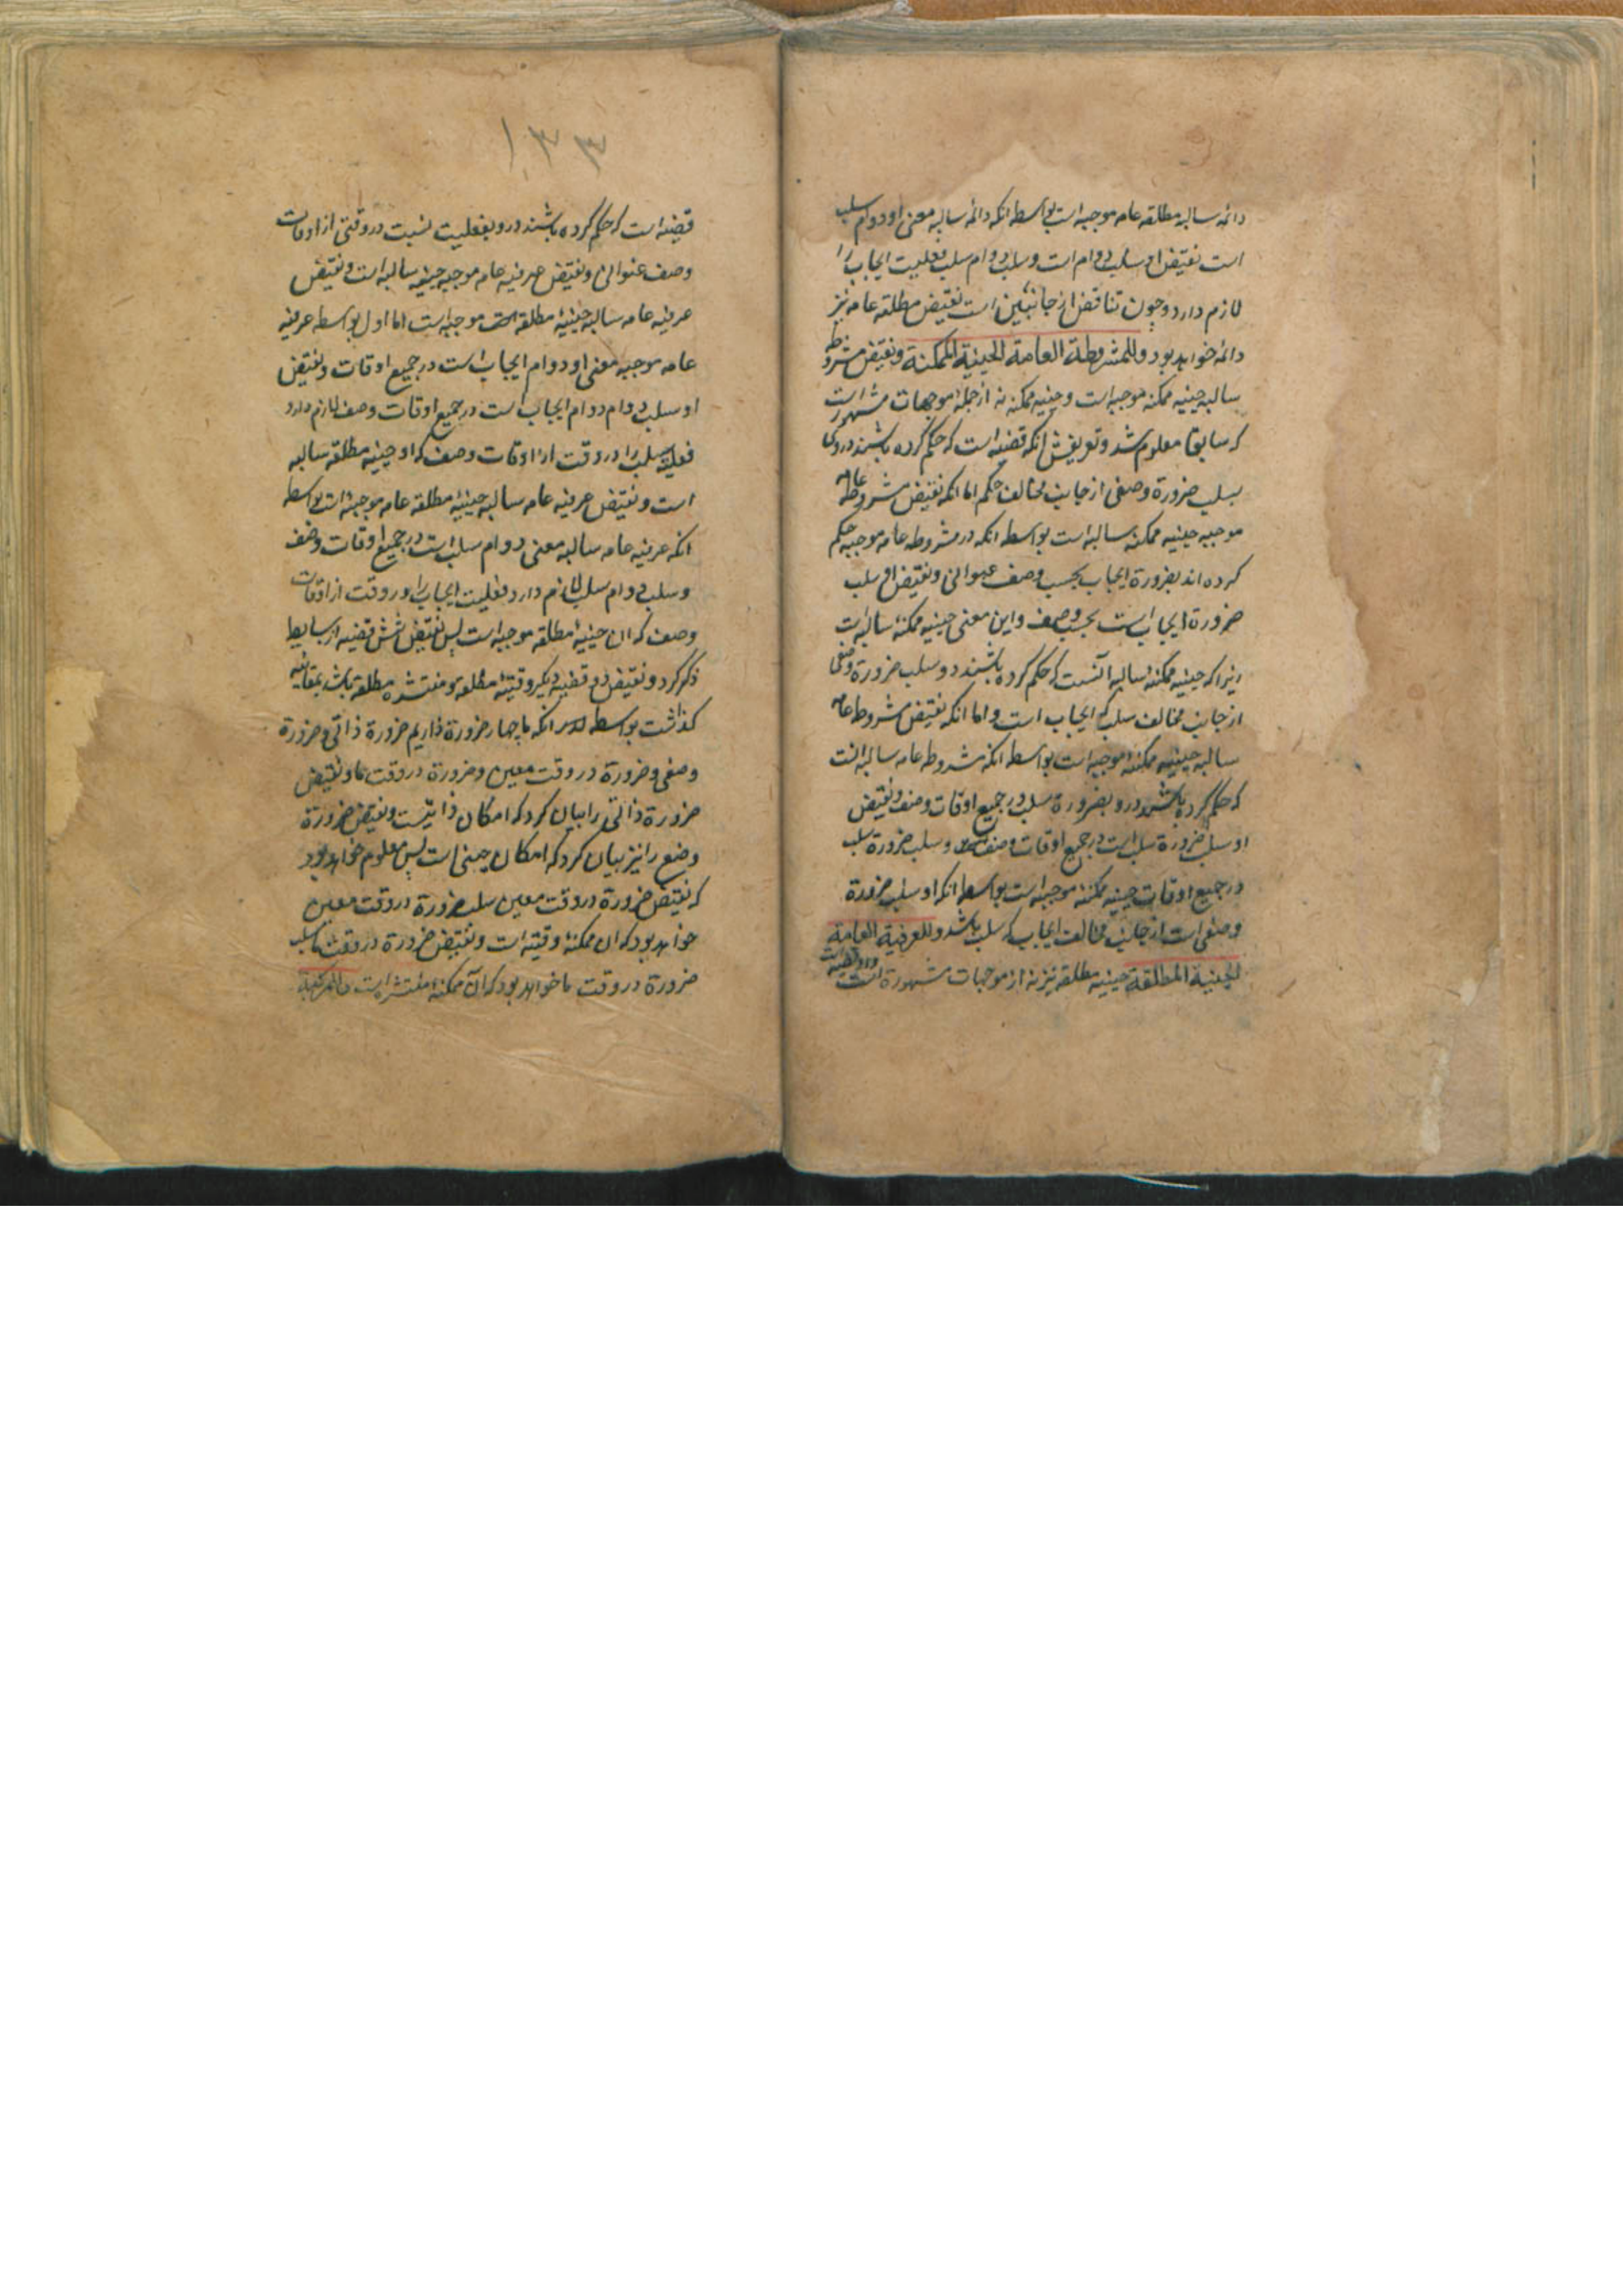 دائمه سالبه مطلقه عامه موجبه است بواسطه انکه دائمه سالبه معنی او دوام سلب
است نقیض او سلب دوام است و سلب دوام سلب فعلیت ایجاب را
لازم دارد و چون تناقض از جانبین است نقیض مطلقه عامه نیز
دائمه خواهد بود و للمشروطة العامة الحینیة الممکنة و نقیض مشروطه
سالبه حینیه ممکنه موجبه است و حینیه ممکنه نه از جمله موجهات مشهور است
که سابقا معلوم شد و تعریفش انکه قضیه است که حکم کرده باشند در وی
بسلب ضرورة وصفی از جانب مخالف حکم اما انکه نقیض مشروطه عامه
موجبه حینیه ممکنه سالبه است بواسطه انکه در مشروطه عامه موجبه حکم
کرده اند بضرورة ایجاب بحسب وصف عنوانی و نقیض او سلب
ضرورة ایجاب است بحسب وصف و این معنی حینیه ممکنه سالبه است
زیرا که حینیه ممکنه سالبه انست که حکم کرده باشند درو سلب ضرورة وصفی
از جانب مخالف سلب که ایجاب است و اما انکه نقیض مشروطه عامه
سالبه حینیه ممکنه موجبه است بواسطه انکه مشروطه عامه سالبه انست
که حکم کرده باشند درو بضرورة سلب در جمیع اوقات وصف و نقیض
او سلب ضرورة سلب است در جمیع اوقات وصف و سلب ضرورة سلب
در جمیع اوقات حینیه ممکنه موجبه است بواسطه انکه او سلب ضرورة
وصفی است از جانب مخالف ایجاب که سلب باشد و للعرفیة العامة
الحینیة المطلقة حینیه مطلقه نیز نه از موجهات مشهورة است
۱۳۳
قضیه است که حکم کرده باشند درو بفعلیت نسبت در وقتی از اوقات
وصف عنوانی و نقیض عرفیه عامه موجبه حینیه سالبه است و نقیض
عرفیه عامه سالبه حینیه مطلقه موجبه است اما اول بواسطه عرفیه
عامه موجبه معنی او دوام ایجاب است در جمیع اوقات و نقیض
او سلب دوام دوام ایجاب است در جمیع اوقات وصف لازم دارد
فعلیة سلب را در وقت از اوقات وصف که او حینیه مطلقه سالبه
است و نقیض عرفیه عامه سالبه حینیه مطلقه عامه موجبه است بواسطه
انکه عرفیه عامه سالبه معنی دوام سلب است در جمیع اوقات وصف
و سلب دوام سلب لازم دارد فعلیت ایجاب را در وقت از اوقات
وصف که ان حینیه مطلقه موجبه است پس نقیض شش قضیه از بسایط
ذکر کرد و نقیض دو قضیه دیکر وقتیه مطلقه و منتشره مطلقه باشد بمقایسه
کذاشت بواسطه انکه ما چهار ضرورة داریم ضرورة ذاتی و ضرورة
وصفی و ضرورة در وقت معین و ضرورة در وقت ما و نقیض
ضرورة ذاتی را بیان کرد که امکان ذاتیست و نقیض ضرورة
وضع را نیز بیان کرد که امکان حینی است پس معلوم خواهد بود
که نقیض ضرورة در وقت معین سلب ضرورة در وقت معین
خواهد بود که ان ممکنه وقتیه است و نقیض ضرورة در وقت ما سلب
ضرورة در وقت ما خواهد بود که آن ممکنه منتشره است و للمرکبة